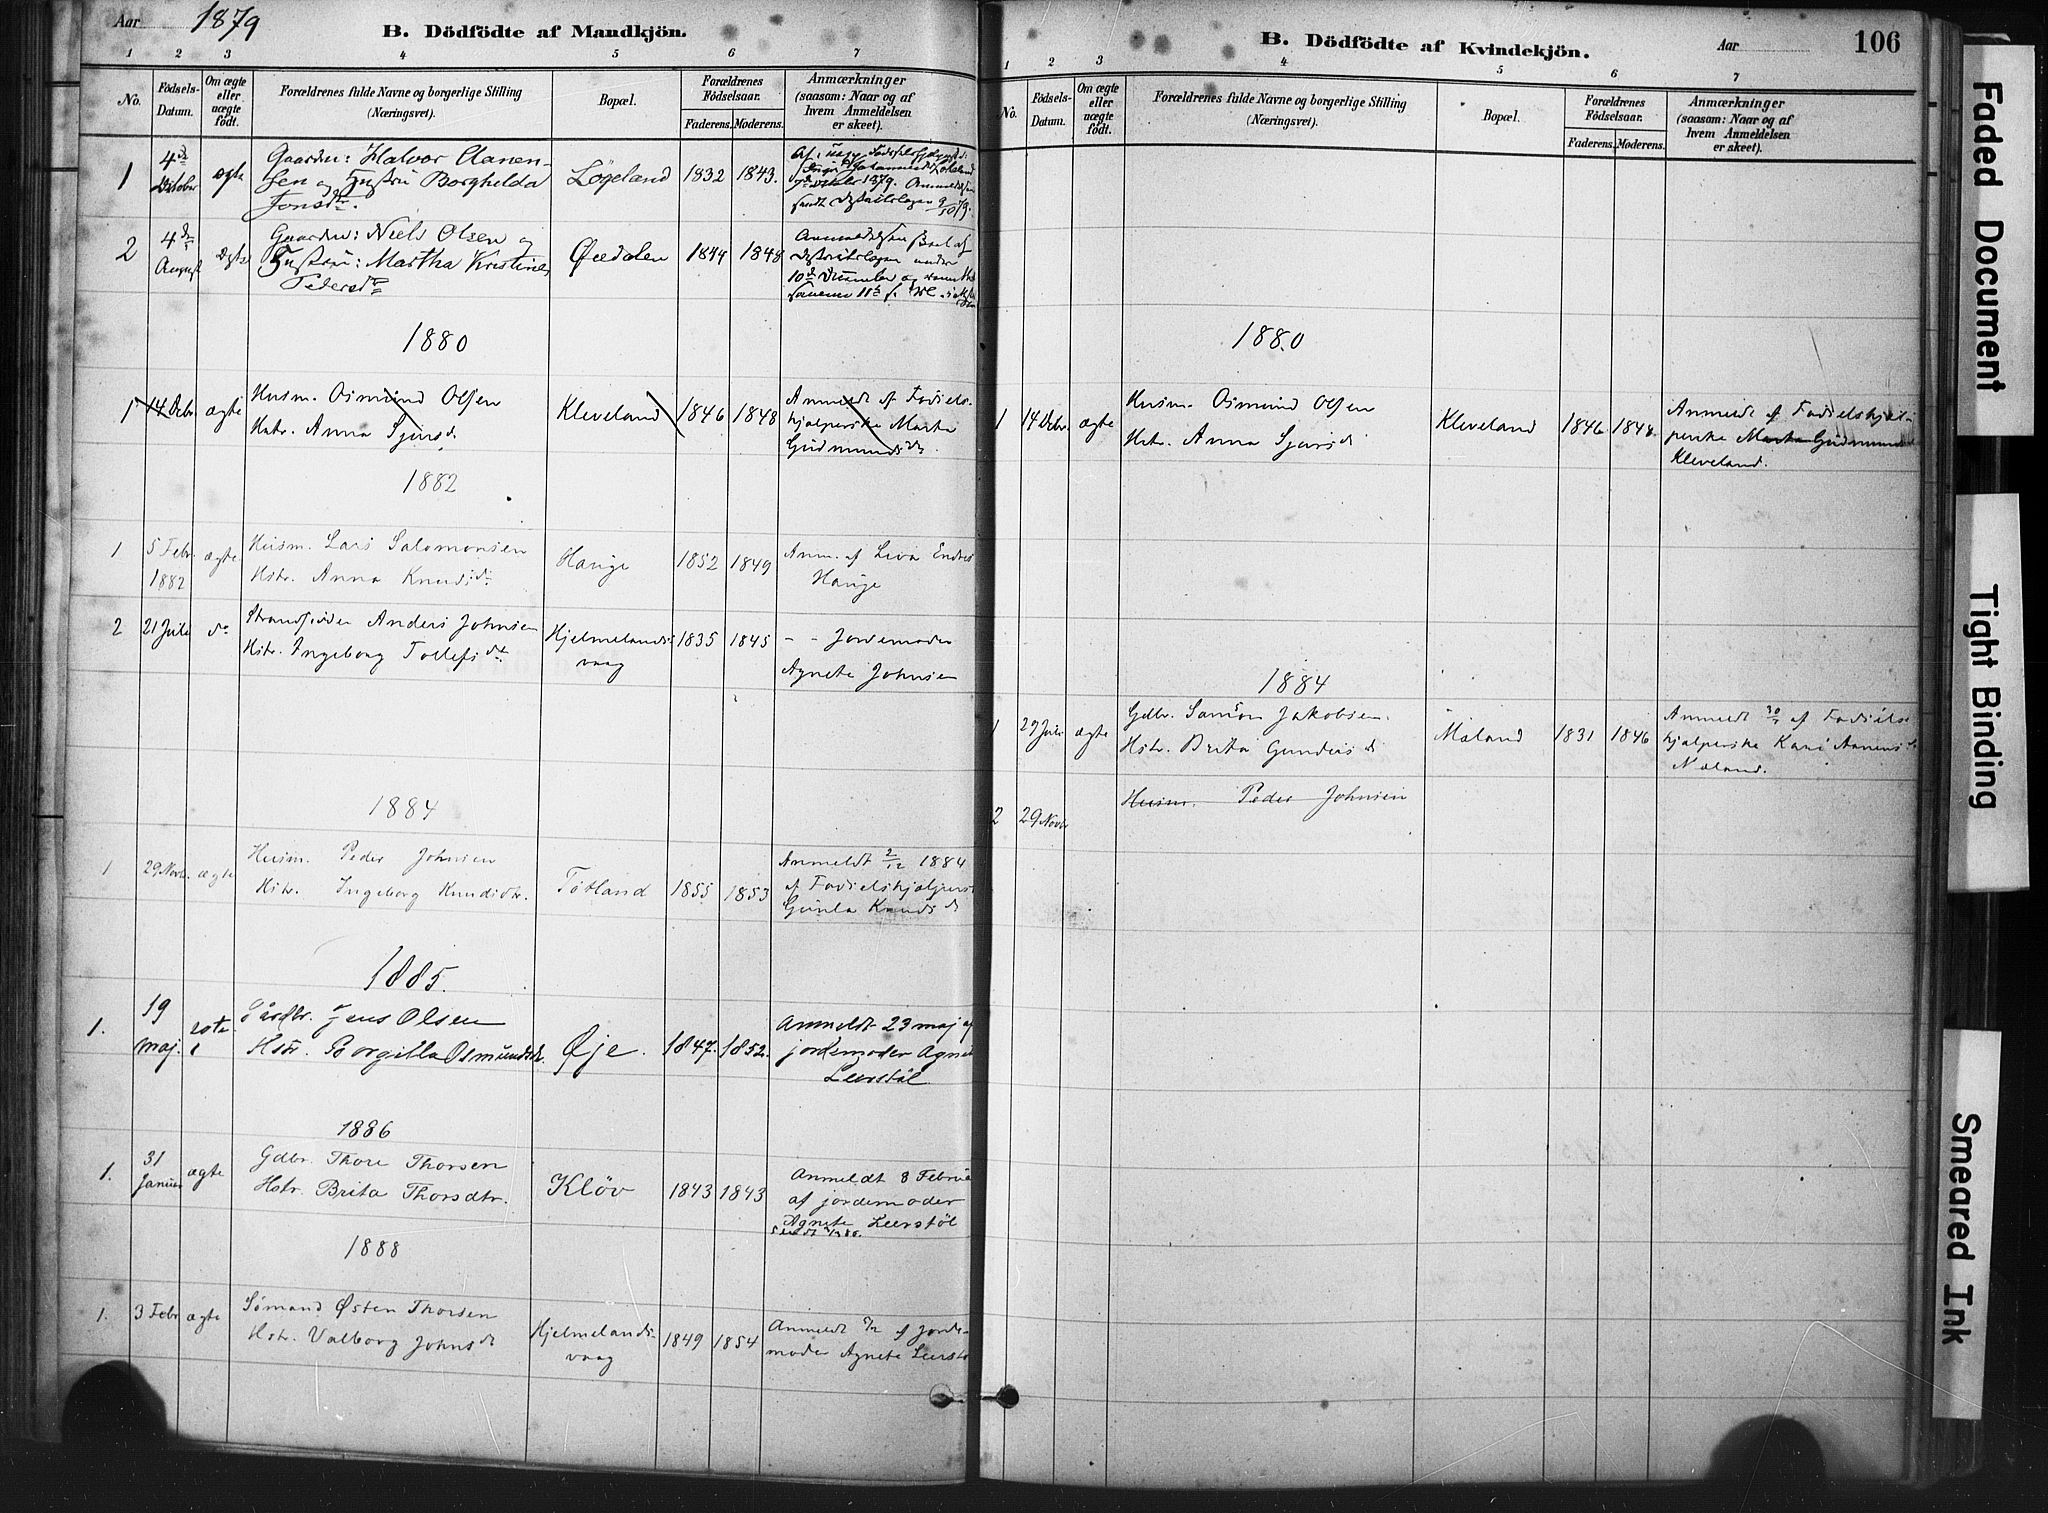 Aar 1879
B. Dödfödte af Mandkjön.
1 2 3 4 5 6 7
No.
Födsels-Datum.
Om ægte eller uægte födt.
Forældrenes fulde Navne og borgerlige Stilling (Næringsvei).
Bopæl.
Forældrenes Födselsaar.
Faderens. Moderens.
Anmærkninger (saasom: Naar og af hvem Anmeldelsen er skeet).
1 4de October ægte Gaardm: Halvor Aanen-
sen og Hustru Borghilda Løgeland 1832 1843.
Jonsdtr.
2 4de August ægte Gaardm: Niels Olsen og
Hustru: Martha Kristine Øvedalen 1844 1848
Pedersdtr
1880
1 14 Debr ægte Husm. Osmund Olsen
Hstr. Anna Sjursd. Kleveland 1846 1848
Anmeldt af Fødsels-
hjælperske Marta
Gudmundsdtr
1882
1 5 Febr. 1882 ægte Husm. Lars Salomonsen
Hstr. Anna Knudsdtr Hauge 1852 1849
Anm. af Liva Endres
Hauge
2 21 Juli do Strandsidder Anders Johnsen
Hstr. Ingeborg Tollefsdtr Hjelmelands-
vaag 1835 1845
- - Jordemoder
Agnete Johnsen
1884
1 29 Novbr. ægte Husm. Peder Johnsen
Hstr. Ingeborg Knudsdtr. Tøtland 1855 1853
Anmeldt 2/12 1884
af Fødselshjælpers
Gunla Knudsd
1885.
1. 19 maj. Gårdbr. Jens Olsen
Hstr. Borgilla Osmundsdtr. Øje. 1847. 1852.
Anmeldt 23 maj af
jordemoder Agnete
Leerstöl
1886
1. 31 Januar ægte Gdbr. Thore Thorsen
Hstr. Brita Thorsdtr. Klöv 1843 1843
Anmeldt 8 Februa
af jordemoder
Agnete Leerstöl
1888
1. 3 Febr ægte Sømand Østen Thorsen
Hstr. Valborg Johnsd Hjelmelands-
vaag 1849 1854
Anmeldt af Jorde-
moder Agnete Leersto
B. Dödfödte af Kvindekjön.
Aar
106
1 2 3 4 5 6 7
No.
Födsels-Datum.
Om ægte eller uægte födt.
Forældrenes fulde Navne og borgerlige Stilling (Næringsvei).
Bopæl.
Forældrenes Födselsaar.
Faderens. Moderens.
Anmærkninger (saasom: Naar og af hvem Anmeldelsen er skeet).
1880
1 14 Debr. ægte Husm. Osmund Olsen
Hstr. Anna Sjursd Kleveland 1846 1848.
Anmeldt af Fødselshjæl-
perske Marta Gudmunds
Kleveland.
1884
1 27 Juli ægte Gdbr. Samson Jakobsen.
Hstr. Brita Gundersd Mæland 1831 1846
Anmeldt 30/7 af Fødsels-
hjælperske Kari Aanens
Mæland.
2 29 Novbr Husm. Peder Johnsen
Faded Document
Tight Binding
Smeared Ink